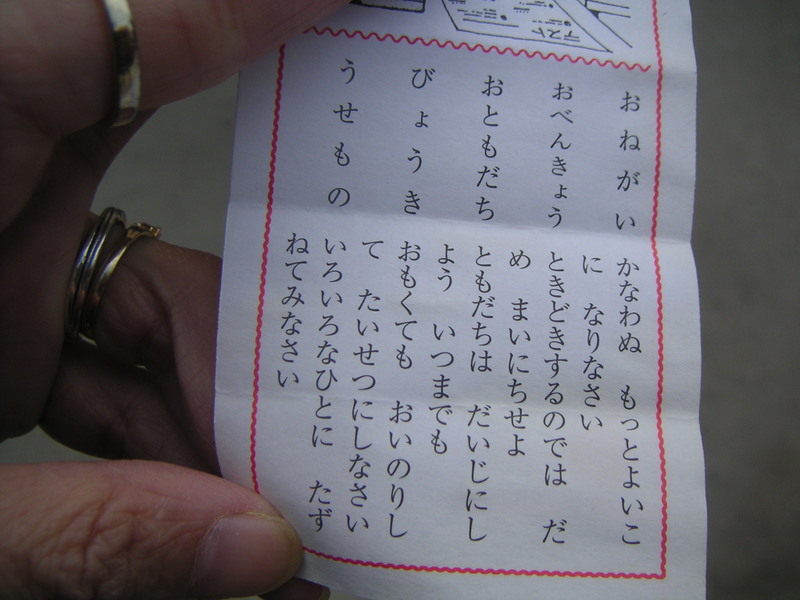 テスト
おねがい　かなわぬ　もっとよいこ
に　なりなさい
おべんきょう　ときどきするのでは　だ
め　まいにちせよ
おともだち　ともだちは　だいじにし
よう　いつまでも
びょうき　おもくても　おいのりし
て　たいせつにしなさい
うせもの　いろいろなひとに　たず
ねてみなさい